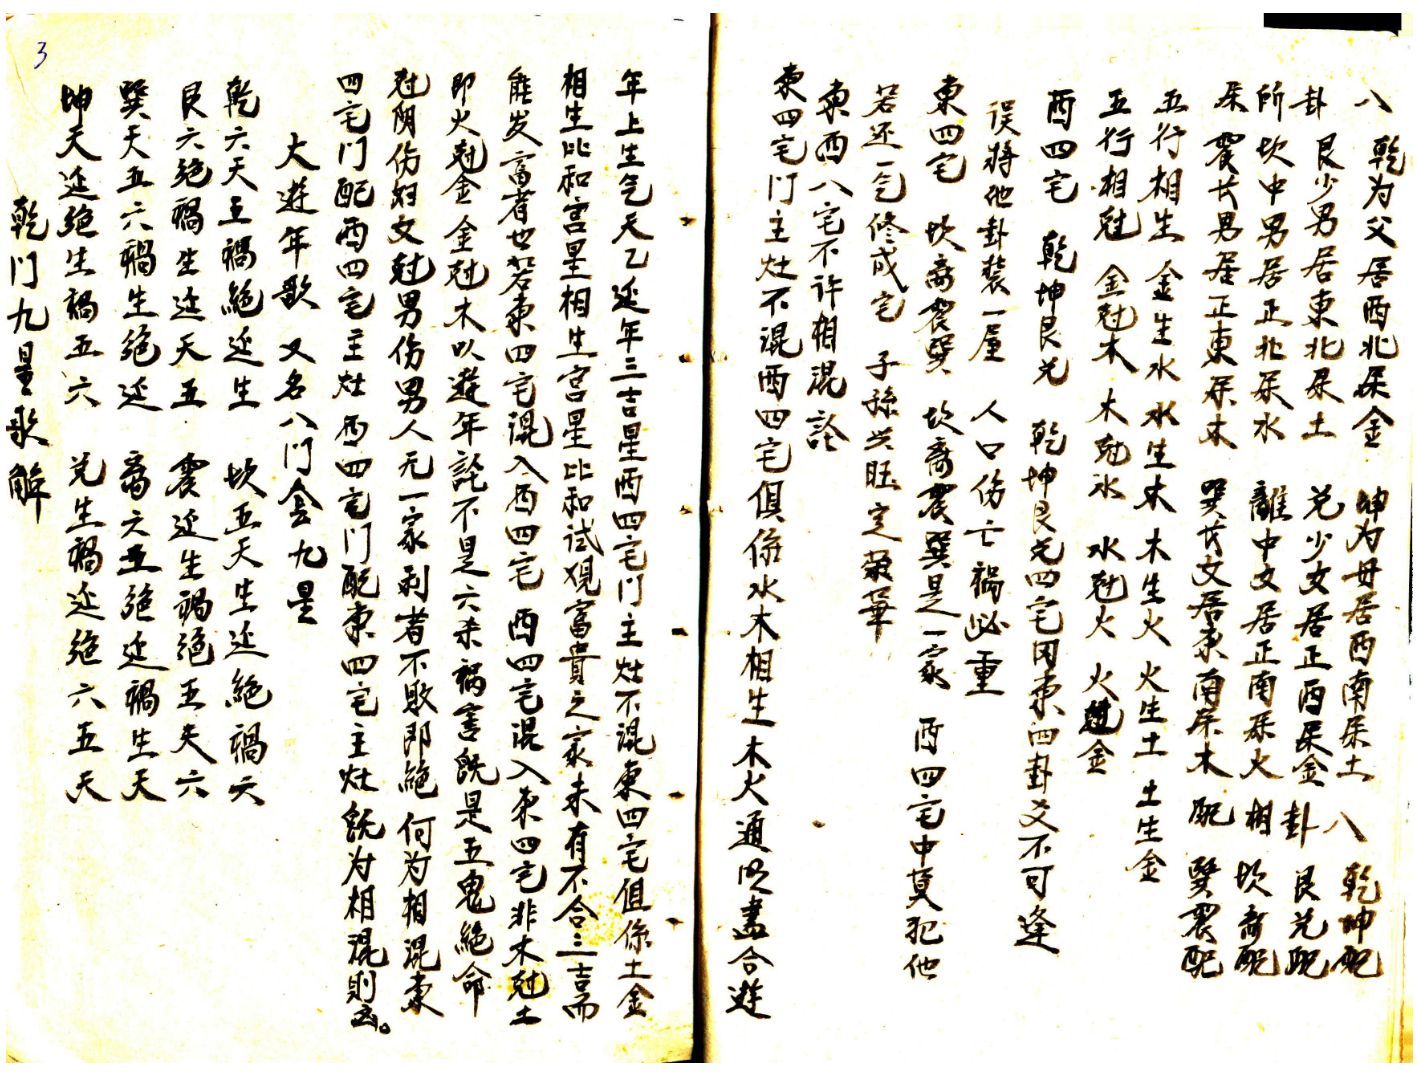 八 乾为父居西北屬金 坤为母居西南屬土 八 乾坤配
卦 艮少男居東北屬土 兑少女居正西屬金 卦 艮兑配
所 坎中男居正北屬水 離中女居正南屬火 相 坎离配
屬 震长男居正東屬木 巽长女居東南屬木 配 巽震配
五行相生 金生水 水生木 木生火 火生土 土生金
五行相尅 金尅木 木尅水 水尅火 火尅金
西四宅 乾坤艮兑 乾坤艮兑四宅同東四卦爻不可逢
误將他卦装一屋 人口伤亡禍必重
東四宅 坎离震巽 坎离震巽是一家 西四宅中莫犯他
若还一气修成宅 子孫兴旺定荣華
東西八宅不许相混论
東四宅门主灶不混西四宅俱係水木相生木火通明盡合遊
年上生气天乙延年三吉星西四宅门主灶不混東四宅俱係土金
相生比和宫星相生宫星比和试观富貴之家未有不合三吉而
能发富者也若東四宅混入西四宅 西四宅混入東四宅非木尅土
即火尅金金尅木以遊年论不是六杀禍害既是五鬼絕命
尅阴伤妇女尅男伤男人无一家利者不敗即絕何为相混東
四宅门配西四宅主灶 西四宅门配東四宅主灶既为相混则凶。
大遊年歌 又名八门套九星
乾六天五禍絕延生 坎五天生延絕禍六
艮六絕禍生延天五 震延生禍絕五天六
巽天五六禍生絕延 离六五絕延禍生天
坤天延絕生禍五六 兑生禍延絕六五天
乾门九星歌解
3